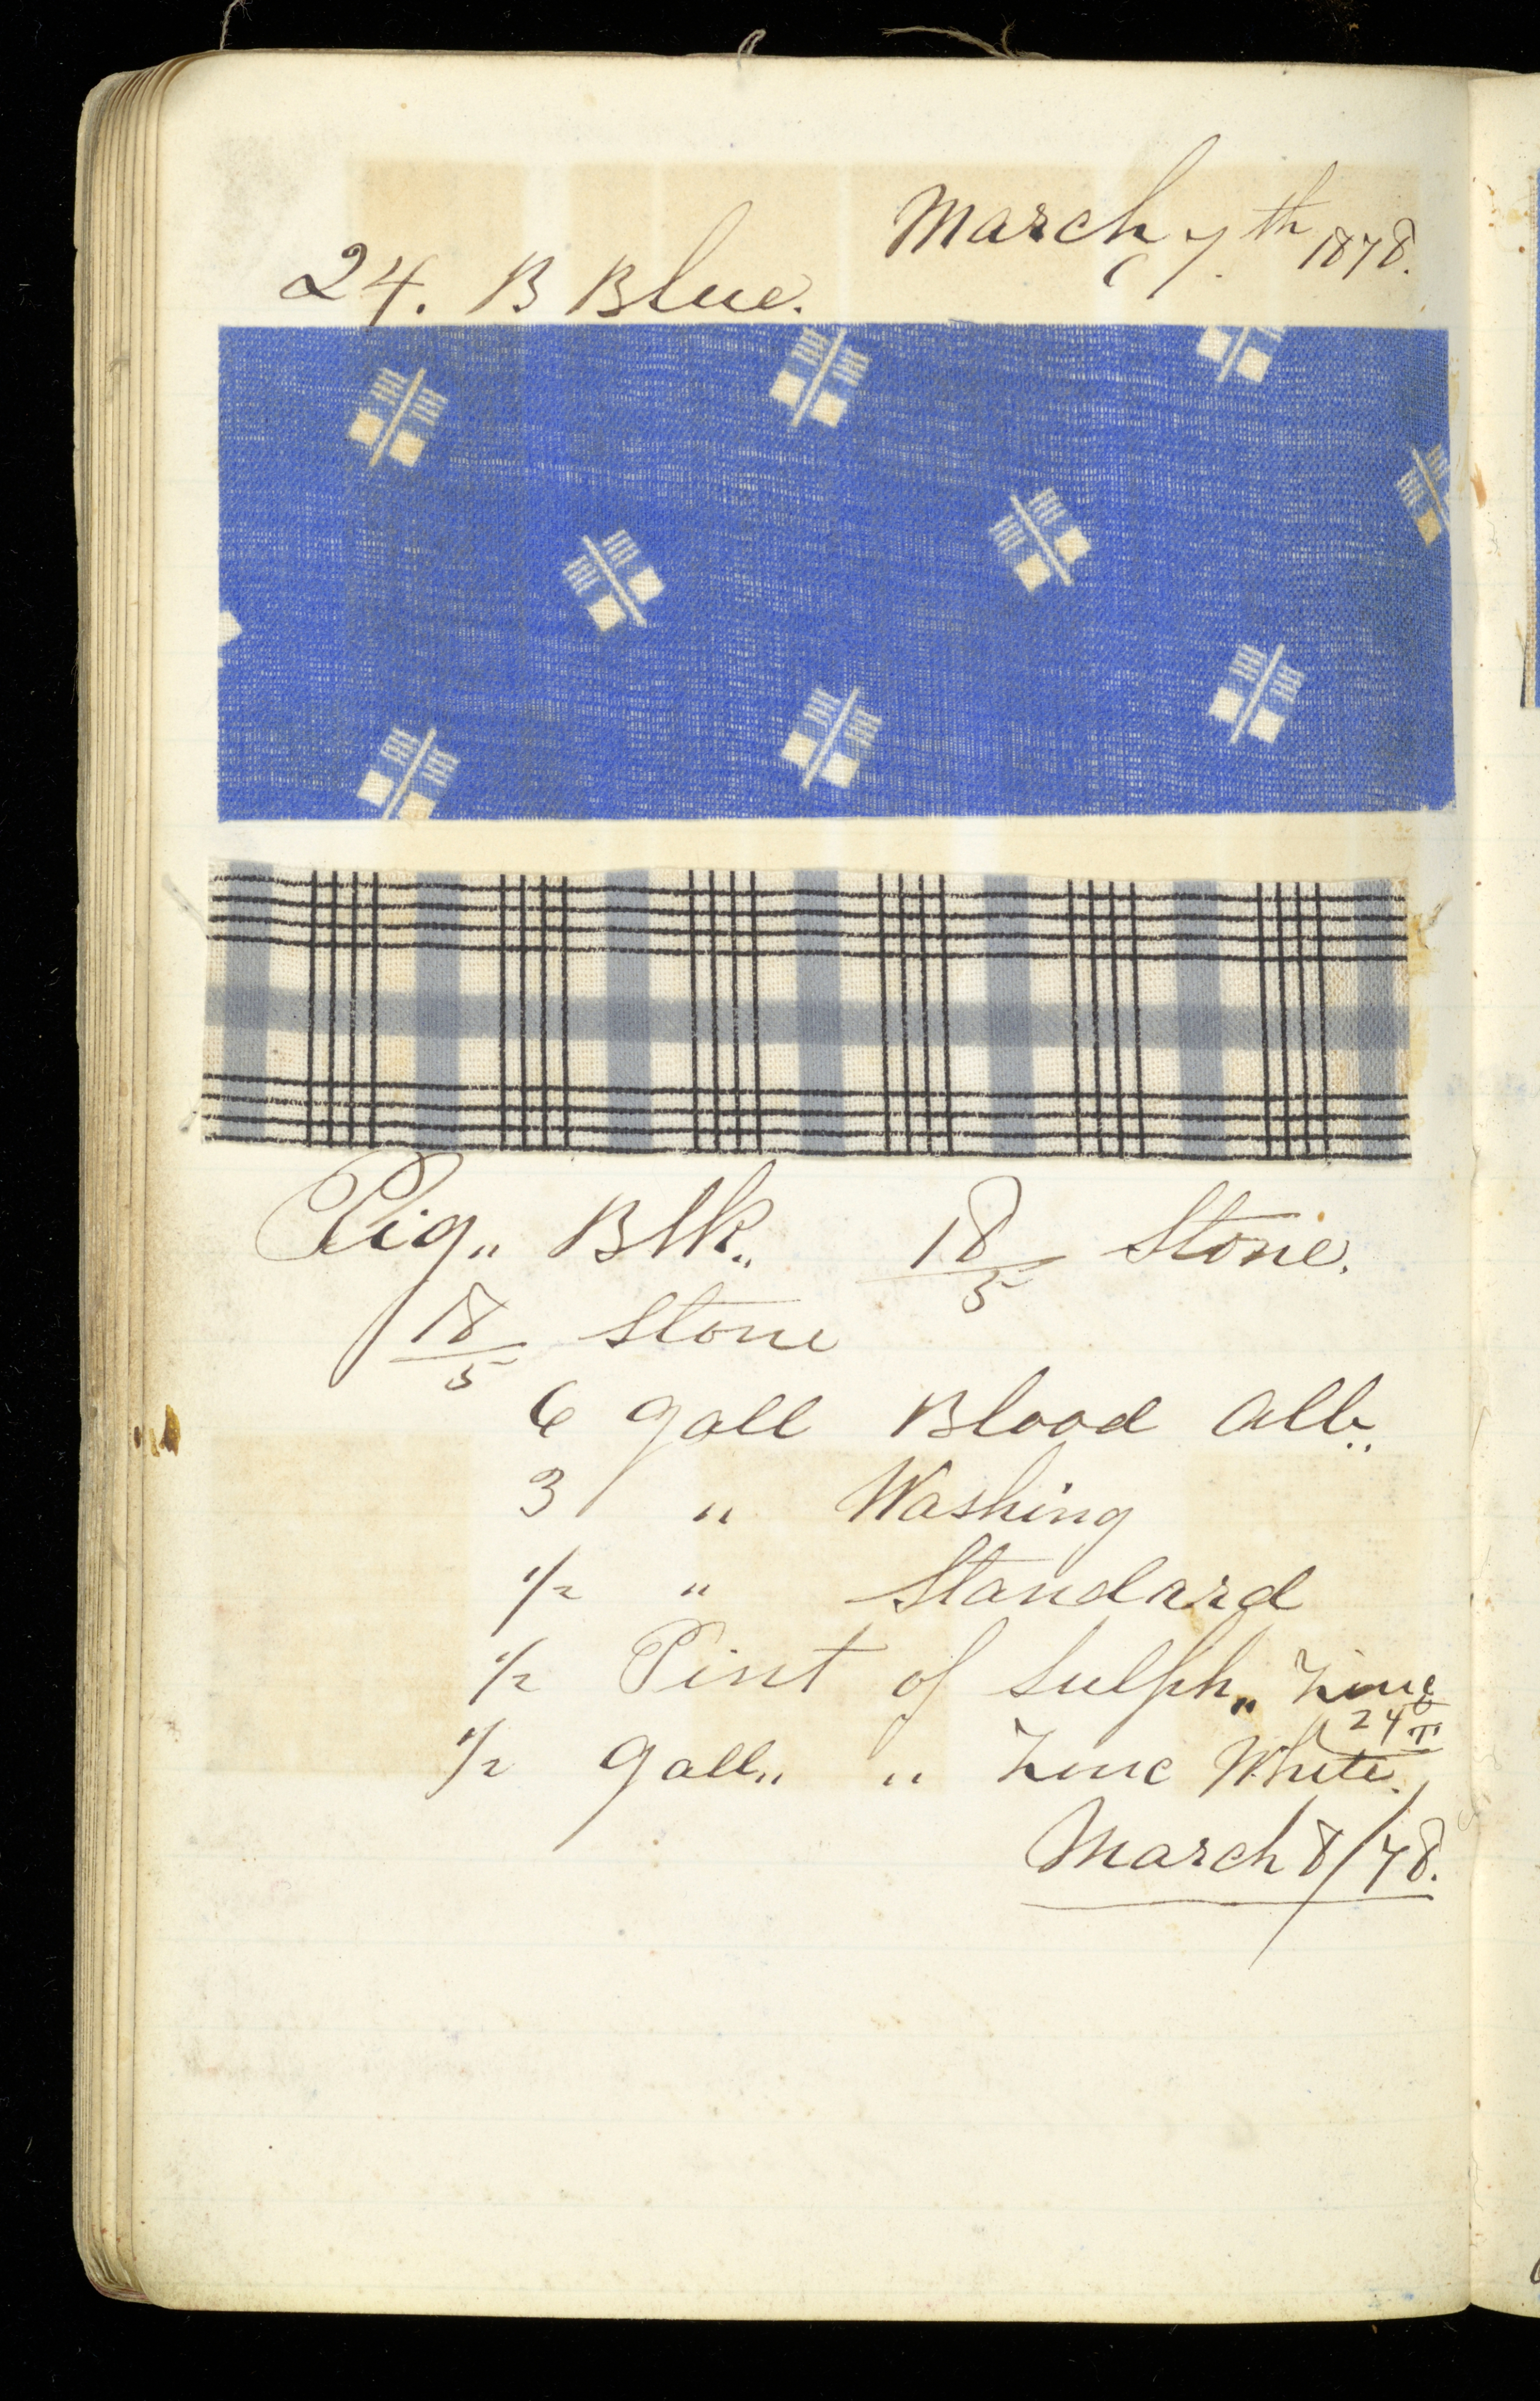 March 7th 1878.
24. B Blue.
Pig„ Blk„ 18/5 Stone.
18/5 Stone
6 gall Blood Alb„
3 " Washing
1/2 " Standard
1/2 Pint of Sulph„ Zinc
24° T
1/2 gall„ " Zinc White.
March 8/78.